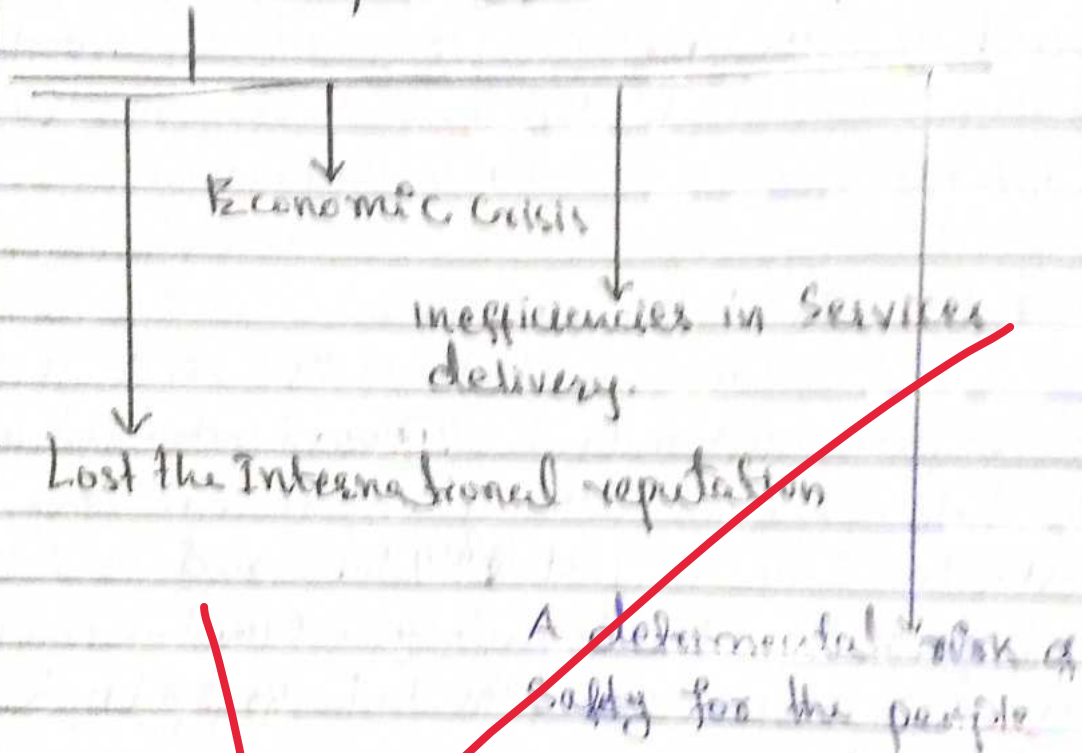 Economic Crisis
inefficiencies in Services
delivery.
Lost the International reputation
A detrimental risk of
Safety for the people